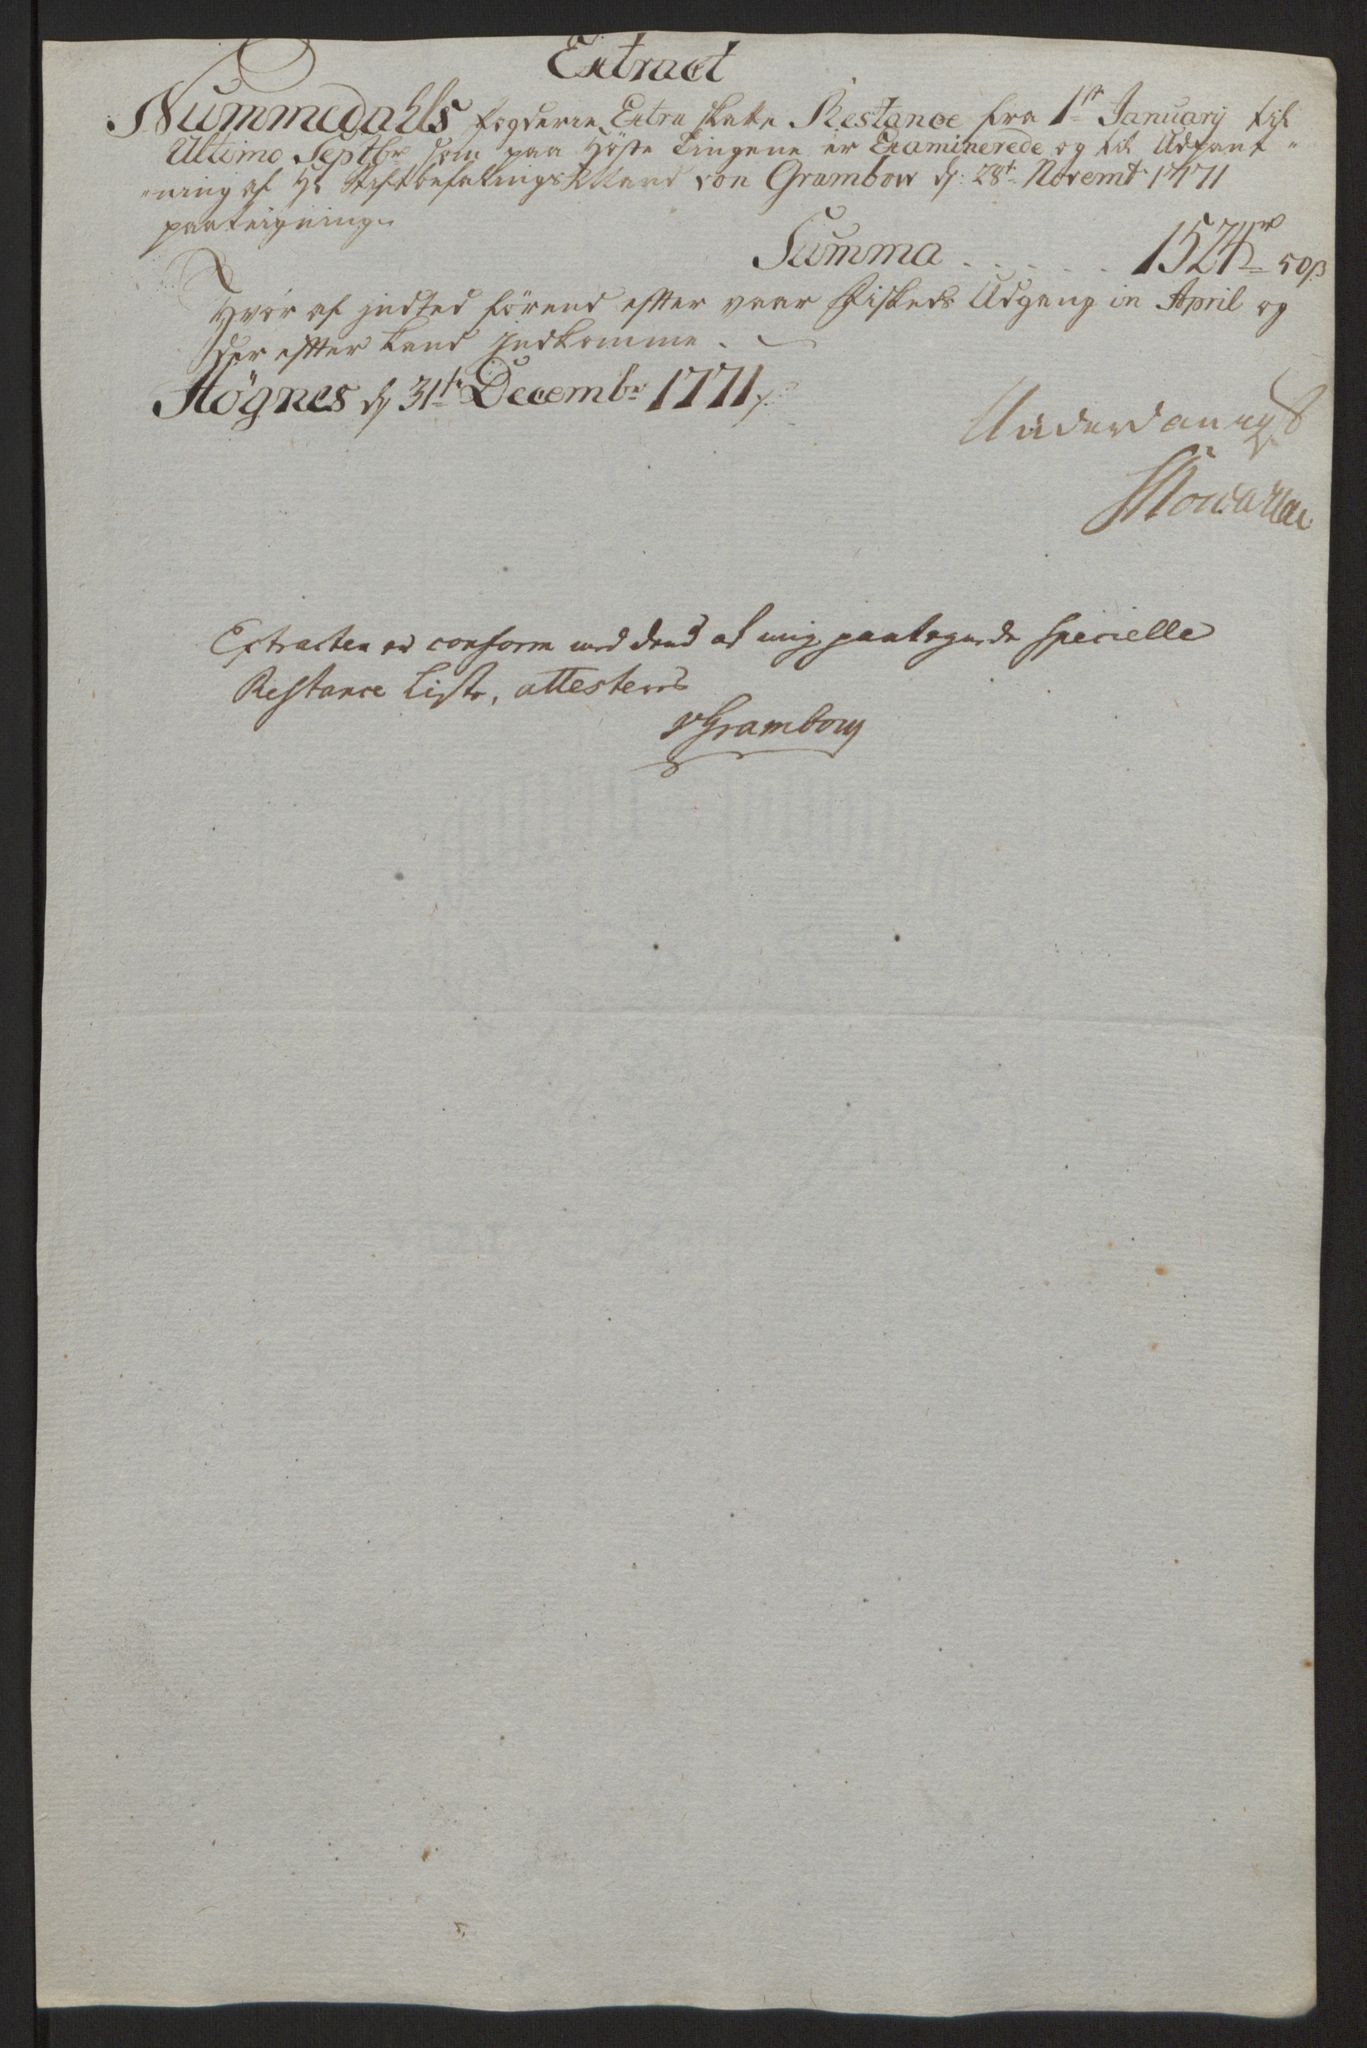 Extract
Nummedahls fogderie Extra skatts Restance fra 1ste January til
Ultimo Septbr som paa Höste Tingene er Examinerede og til Udpant-
-ning af Hr Stiftbefalings Mand von Grambow d: 28de Novembr 1771
paateigning
Summa . . . . . . 1524 rd 50 ß
Hvor af indted förend efter vaar Fiskeds Udgang in April og
der efter kand indkomme.
Högnes d 31te Decembr 1771
Underdanigst
Extracten er conform med dend af mig paategnede specielle
Restance Liste, attesteres
vGrambow